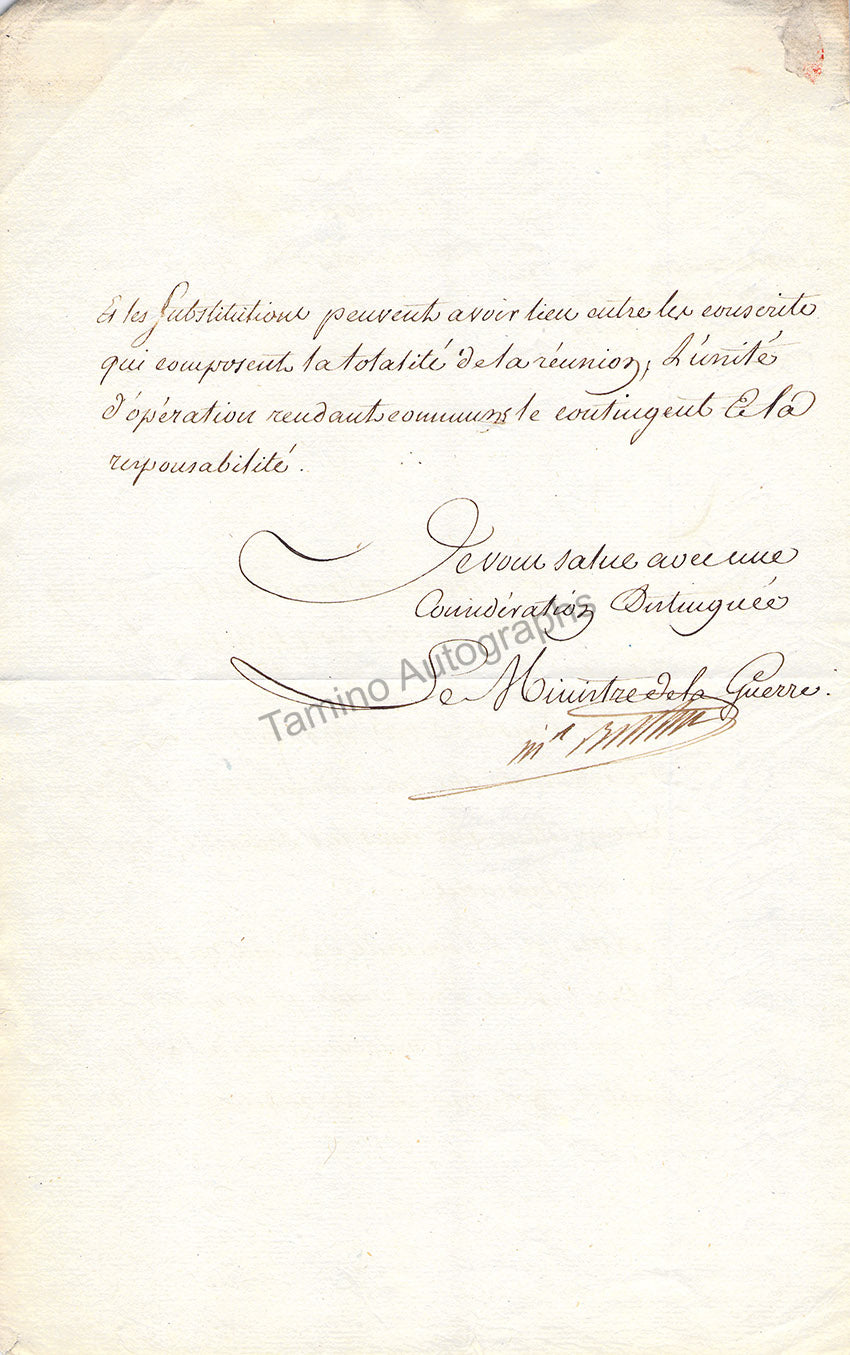 Et les Substitutions peuvent avoir lieu entre les conscrits
qui composent la totalité de la réunion, L'unité
d'opération rendant communs le contingent & la
responsabilité.
Je vous salue avec une
Considération Distinguée
Le Ministre de la Guerre.
Mal
Tamino Autographs